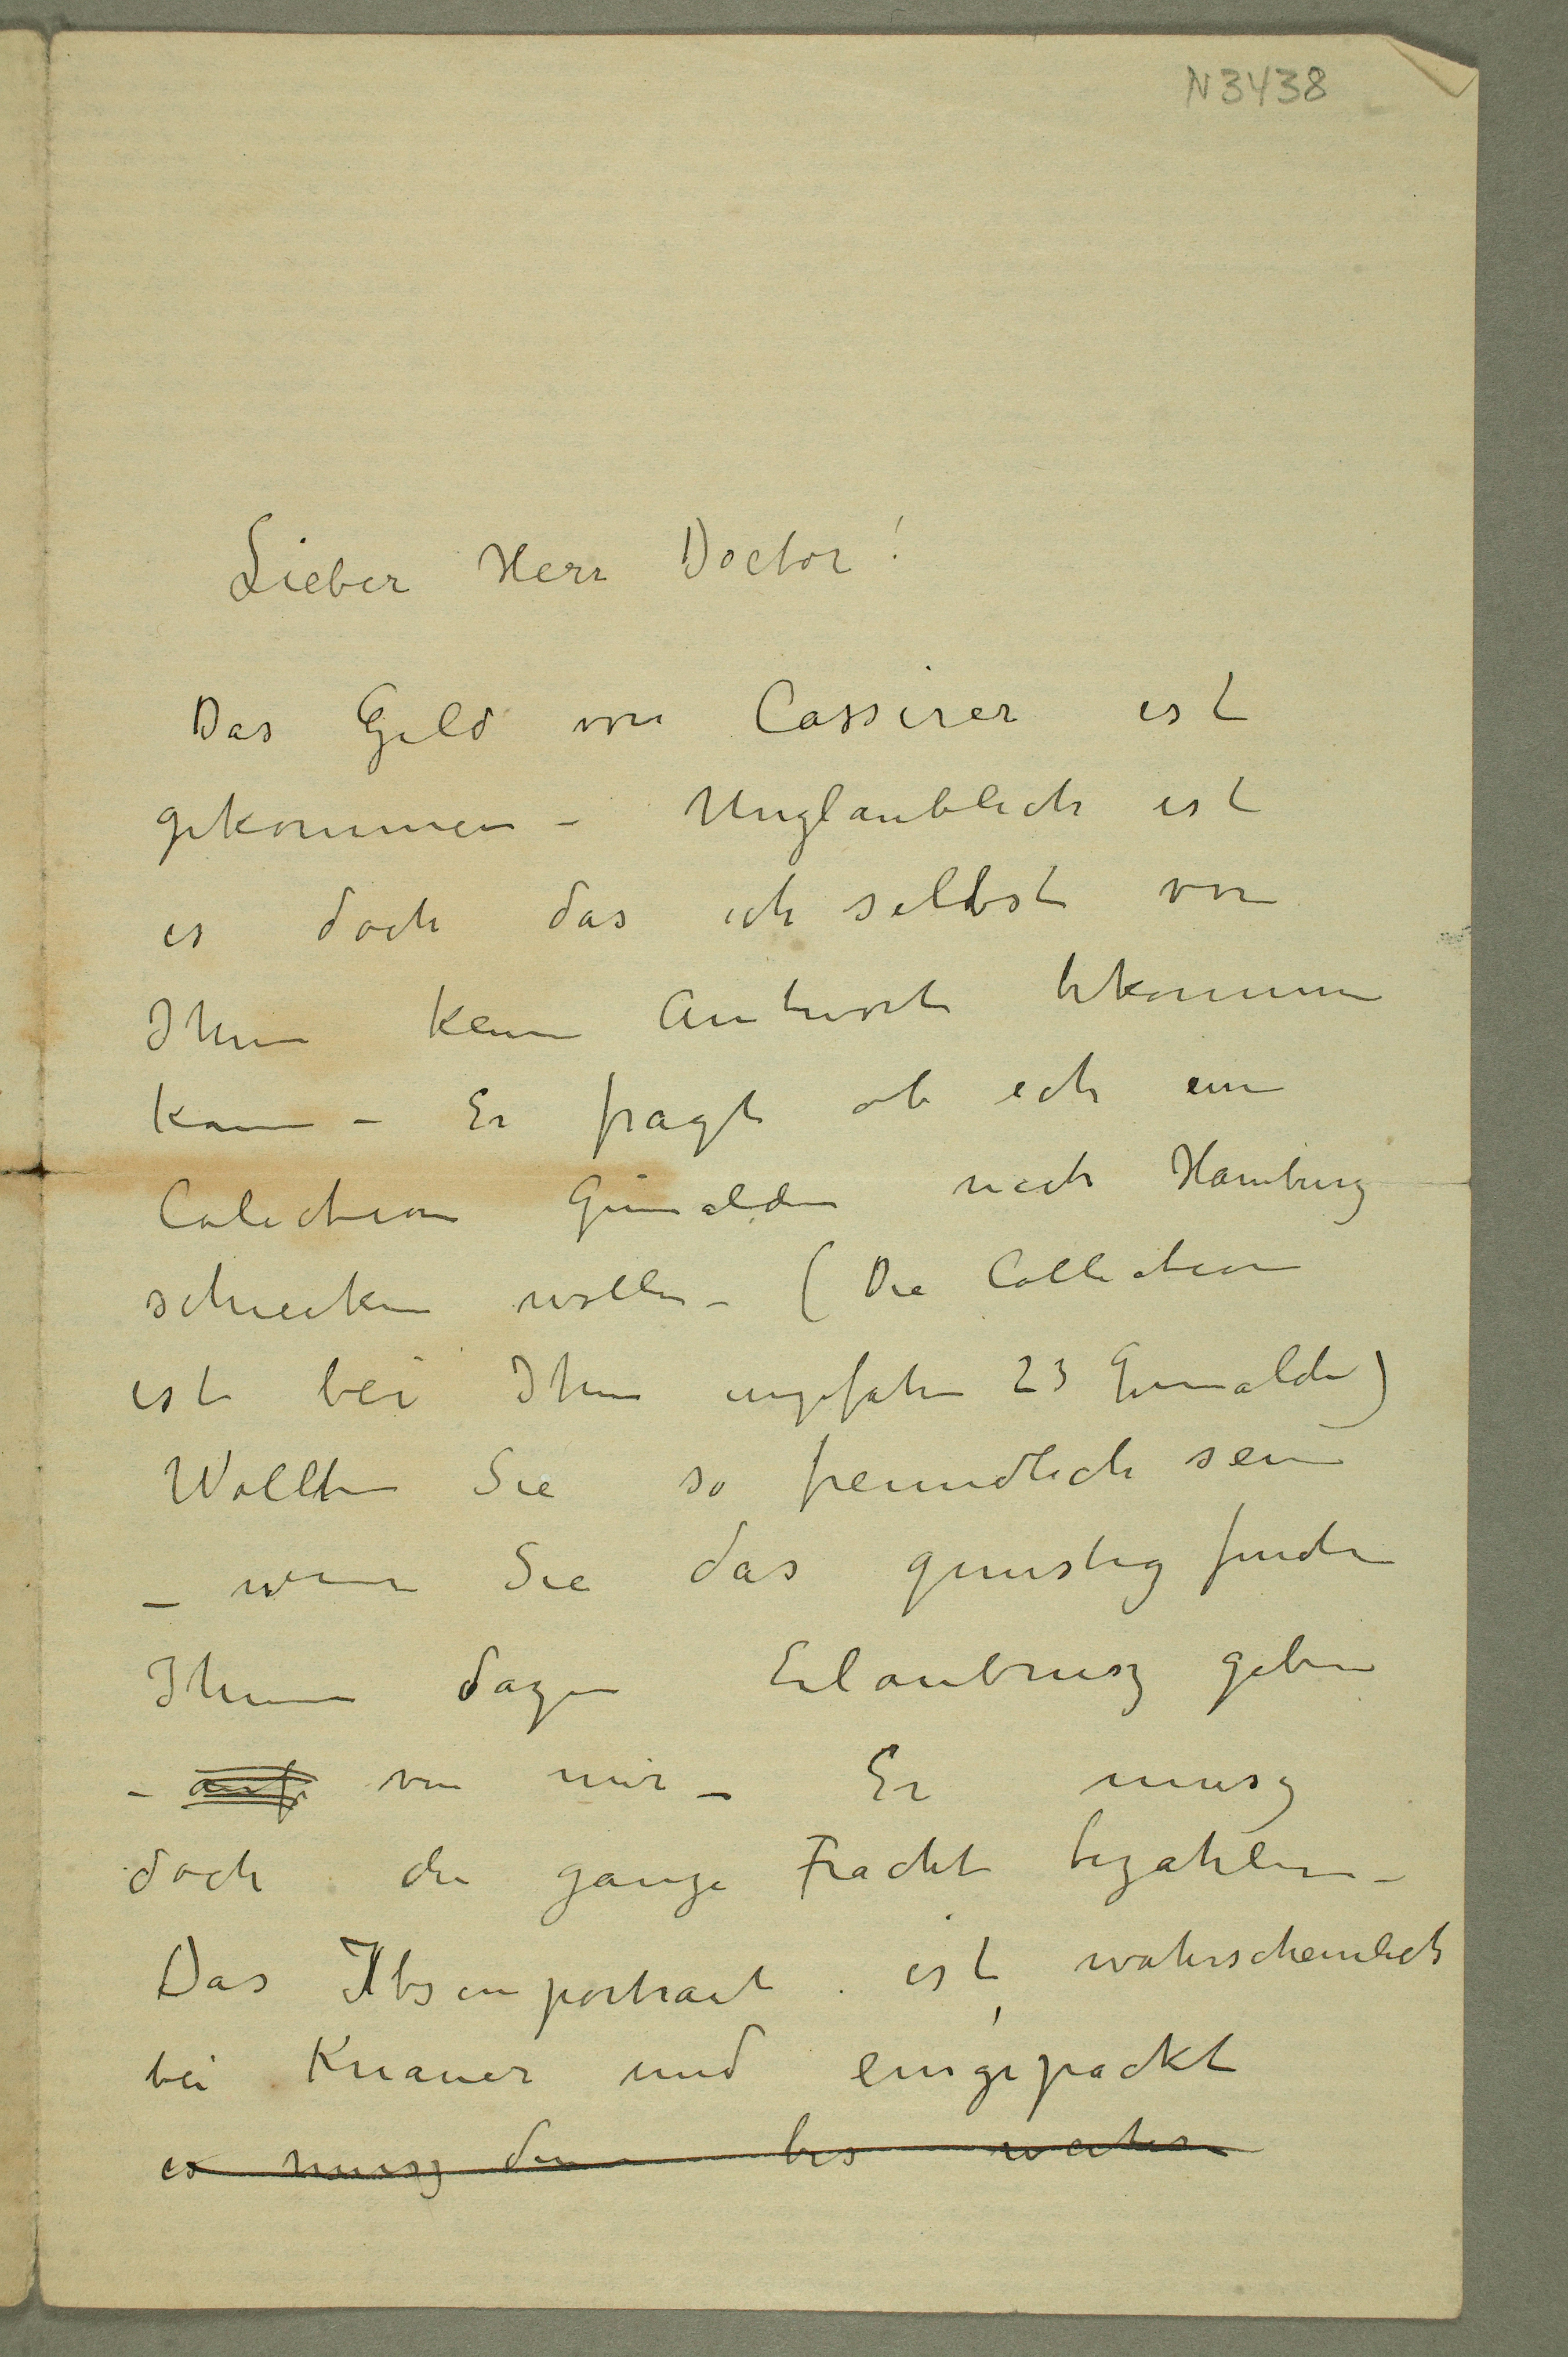 N 3438
Lieber Herr Doctor!
Das Geld von Cassirer ist
gekommen – Unglaublich ist
es doch das ich selbst von
Ihm kein Antwort bekommen
kann – Er fragt ob ich ein
Colection Gemälden nach Hamburg
schicken wollen – (Die Collection
ist bei Ihm ungefahr 23 Gemalde)
Wollten Sie so freundlich sein
– wenn Sie das gunstig finden
Ihm dazu Erlaubnisz geben
– auf von mir – Er musz
doch die ganze Fracht bezahlen –
Das Ibsenportrait ist wahrscheinlich
bei Knauer und eingepackt
es musz denn bis weiter